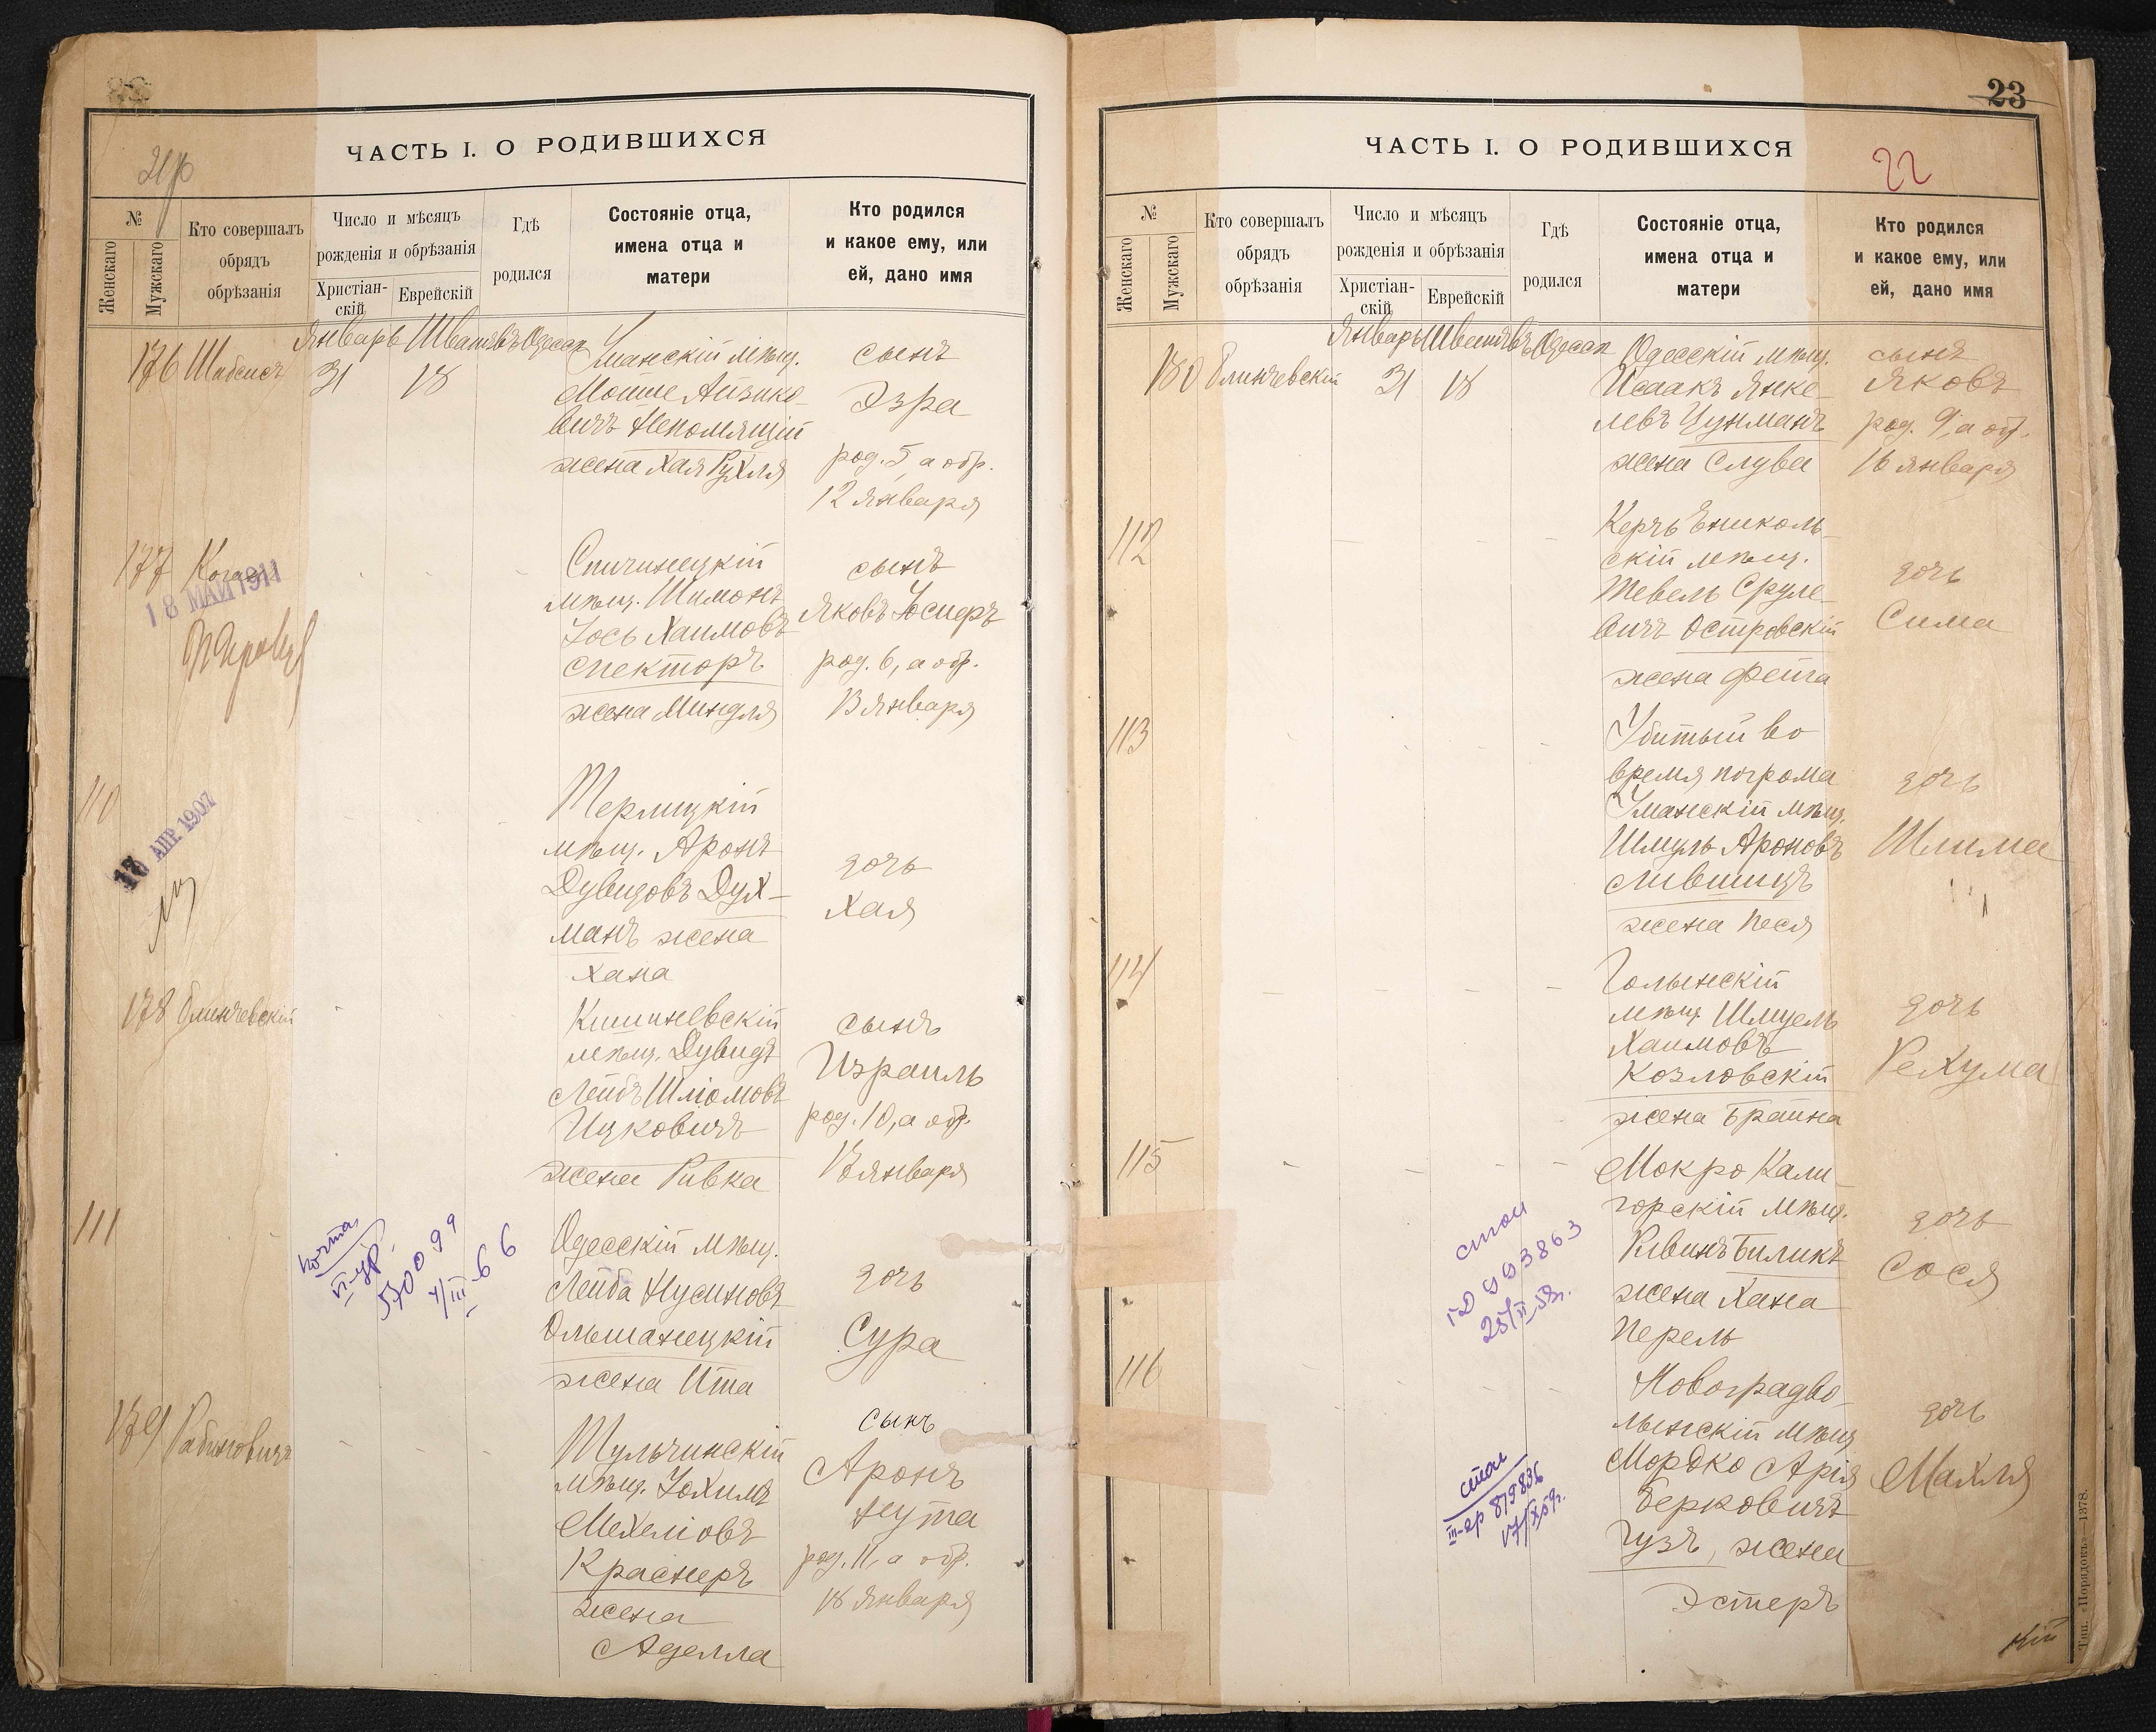 ЧАСТЬ I. О РОДИВШИХСЯ
№
Женскаго
Мужскаго
Кто совершалъ
обрядъ
обрѣзанія
Число и мѣсяцъ
рожденія и обрѣзанія
Христіан-
скій
Еврейскій
Гдѣ
родился
Состояніе отца,
имена отца и
матери
Кто родился
и какое ему, или
ей, дано имя
Январь Шватъ въ Одессѣ
176 Шабсисъ 31 18
Уманскій мѣщ.
Мошие Айзико-
вичъ Непомлящій
жена Хая Рухля
сынъ
Эзра
род. 5, а обр.
12 января
177 Коган
18 МАЙ 1911
Спичинецкій
мѣщ. Шимонъ
Іось Хаимовъ
Спекторъ
жена Миндля
сынъ
Яковъ Іосиеръ
род. 6, а обр.
13 января
110
10 АПР. 1907
Терлицкій
мѣщ. Аронъ
Дувидовъ Дух-
манъ жена
Хана
дочь
Хая
178 Олинчевскій
Кишиневскій
мѣщ. Дувидъ
Лейбъ Шліомовъ
Ицковичъ
жена Ривка
сынъ
Израиль
род. 10, а обр.
17 января
111
Одесскій мѣщ.
Лейба Нусиновъ
Ольшанецкій
жена Ита
дочь
Сура
179 Рабиновичъ
Тульчинскій
мѣщ. Іохимъ
Мехеліовъ
Краснеръ
жена
Аделла
сынъ
Аронъ
Нута
род. 11, а обр.
18 января
23
ЧАСТЬ I. О РОДИВШИХСЯ
22
№
Женскаго
Мужскаго
Кто совершалъ
обрядъ
обрѣзанія
Число и мѣсяцъ
рожденія и обрѣзанія
Христіан-
скій
Еврейскій
Гдѣ
родился
Состояніе отца,
имена отца и
матери
Кто родился
и какое ему, или
ей, дано имя
Январь Шватъ въ Одессѣ
180 Олинчевскій 31 18
Одесскій мѣщ.
Исаакъ Янке-
левъ Цунманъ
жена Слува
сынъ
Яковъ
род. 9, а обр.
16 января
112
Керчь Ениколь-
скій мѣщ.
Тевель Сруле-
вичъ Островскій
жена Фейга
дочь
Сима
113
Убитый во
время погрома
Уманскій мѣщ.
Шмуль Ароновъ
Лившицъ
жена Песя
дочь
Шлима
114
Голынскій
мѣщ. Шмуель
Хаимовъ
Козловскій
жена Брайна
дочь
Рехума
115
Мокро Кали-
горскій мѣщ.
Рувинъ Биликъ
жена Хана
Перель
дочь
Сося
116
Новоградво-
лынскій мѣщ.
Мордко Арія
Берковичъ
Гузъ, жена
Эстеръ
дочь
Махля
Тип. «Порядокъ»—1378.